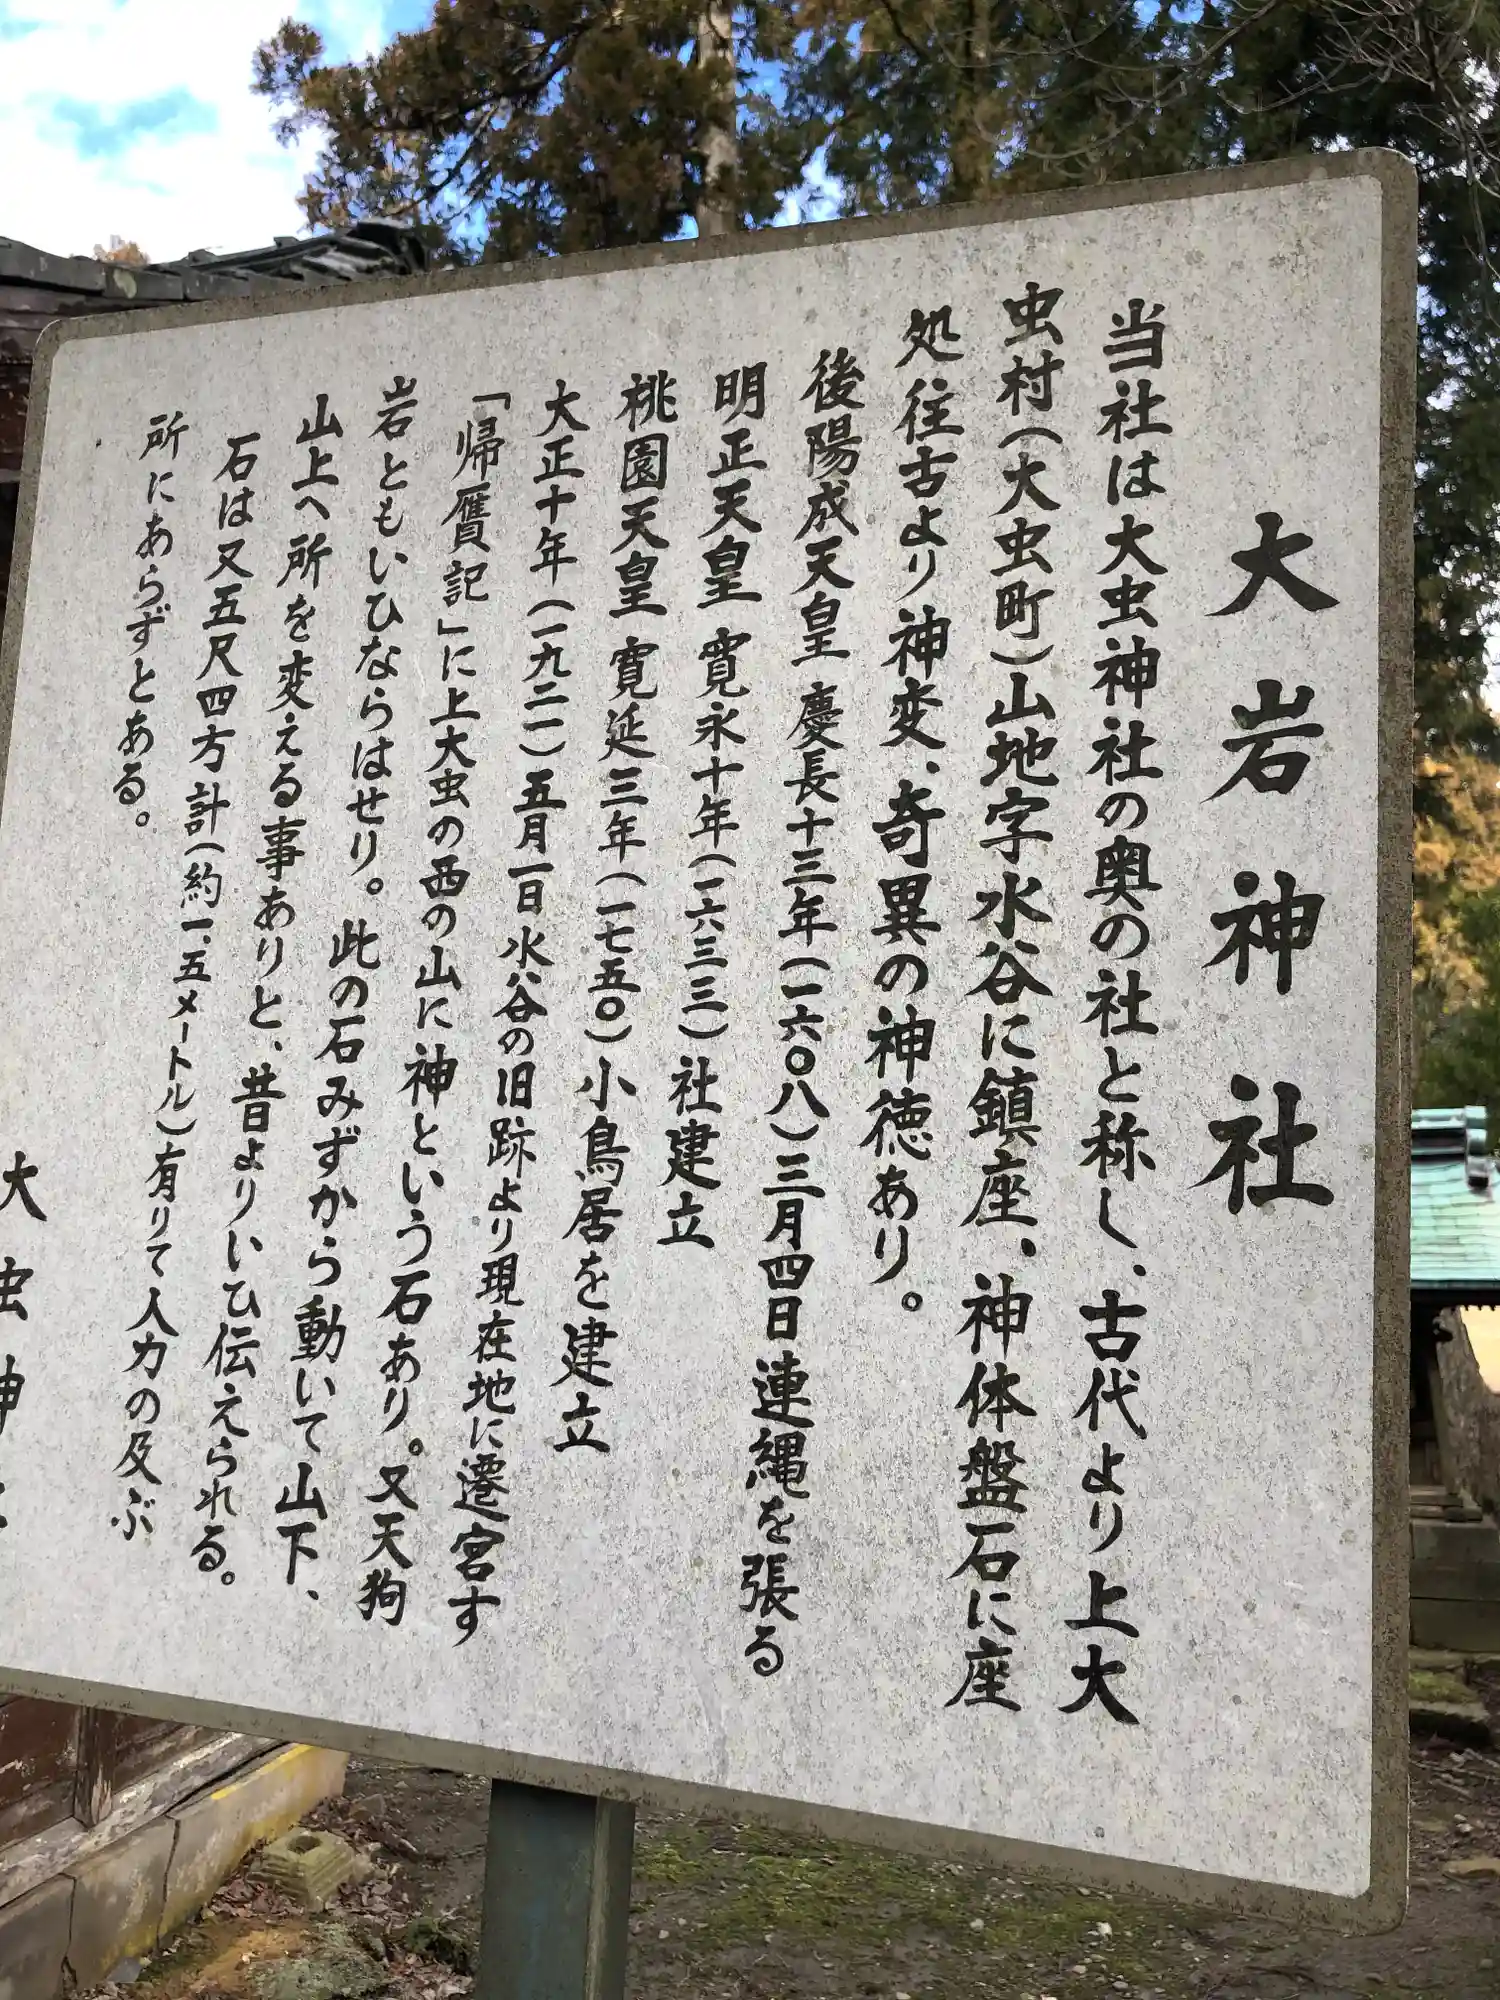 大岩神社
当社は大虫神社の奥の社と称し、古代より上大
虫村(大虫町)山地字水谷に鎮座、神体盤石に座
処往古より神変、奇異の神徳あり。
後陽成天皇 慶長十三年(一六〇八)三月四日連縄を張る
明正天皇 寛永十年(一六三三)社建立
桃園天皇 寛延三年(一七五〇)小鳥居を建立
大正十年(一九二一)五月一日水谷の旧跡より現在地に遷宮す
「帰鴈記」に上大虫の西の山に神という石あり。又天狗
岩ともいひならはせり。此の石みずから動いて山下、
山上へ所を変える事ありと、昔よりいひ伝えられる。
石は又五尺四方計(約一、五メートル)有りて人力の及ぶ
所にあらずとある。
大虫神